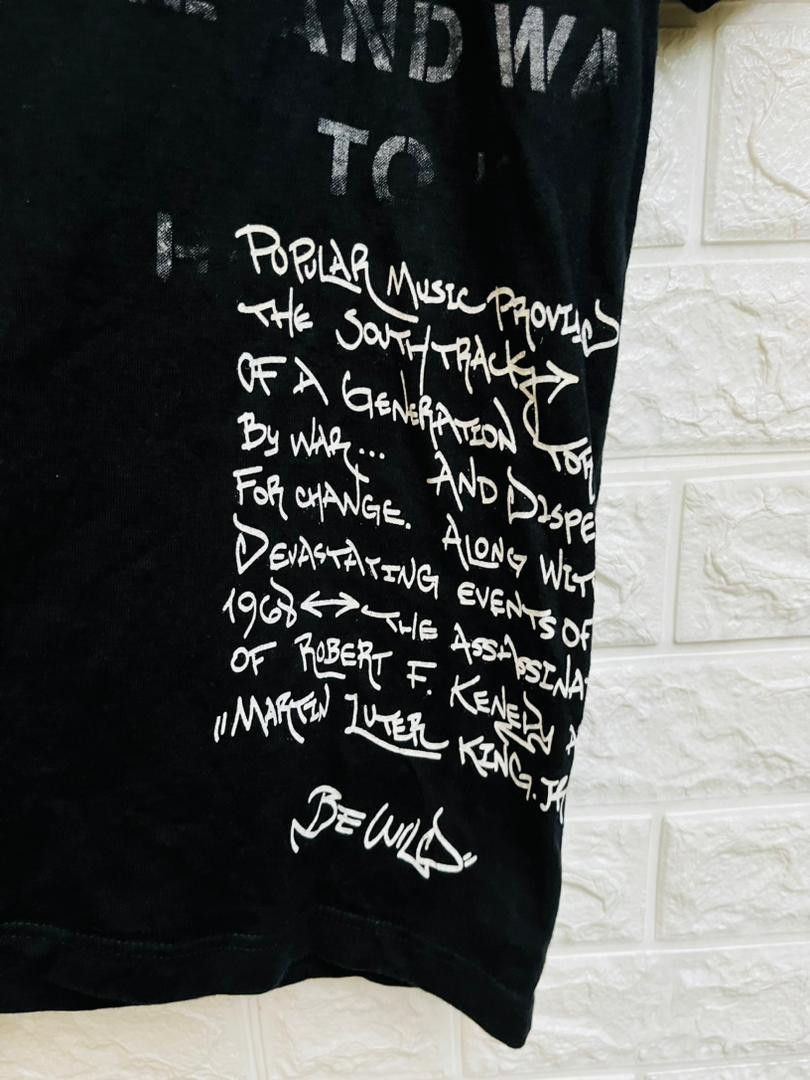 AND WA
TO
H
POPULAR MUSIC PROVIED
THE SOUTHTRACK →
OF A GENERATION TOR
By WAR... AND DISPE
FOR CHANGE. ALONG WIT
DEVASTATING EVENTS OF
1968 ↔ THE ASSASSINA
OF ROBERT F. KENEDY A
"MARTIN LUTER KING. JR
BE WILD"